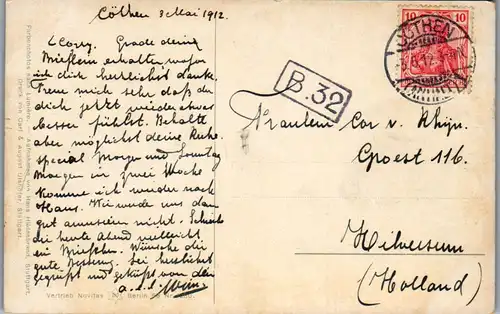 Cöthen 3 Mai 1912.
L Corry. Grade deine
Briefken erhalten, wofor
ich dich herzlichst danke.
Freue mich sehr das du
dich jetzt wieder etwas
besser fühlst. Behalte
aber möglichst deine Ruhe.
special Morgen und Sonntag
Morgen in zwei Woche
komme ich wieder nach
Haus. Wir wurde uns dan
gut amusiren nicht. Schreibe
dir heute Abend vielleicht
ein Briefken. Wünsche dir
gute Besserung. Sei herzlichst
gegrüßt und geküßt von dein
B.32
10 10
CÖTHEN
Fräulein Cor v. Rhijn.
Gpoest 116.
Hilversum
(Holland)
Vertrieb Novitas Berlin SW